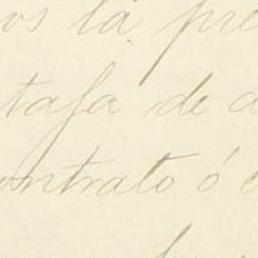 os la pre
tafa de a
ontrato ó e